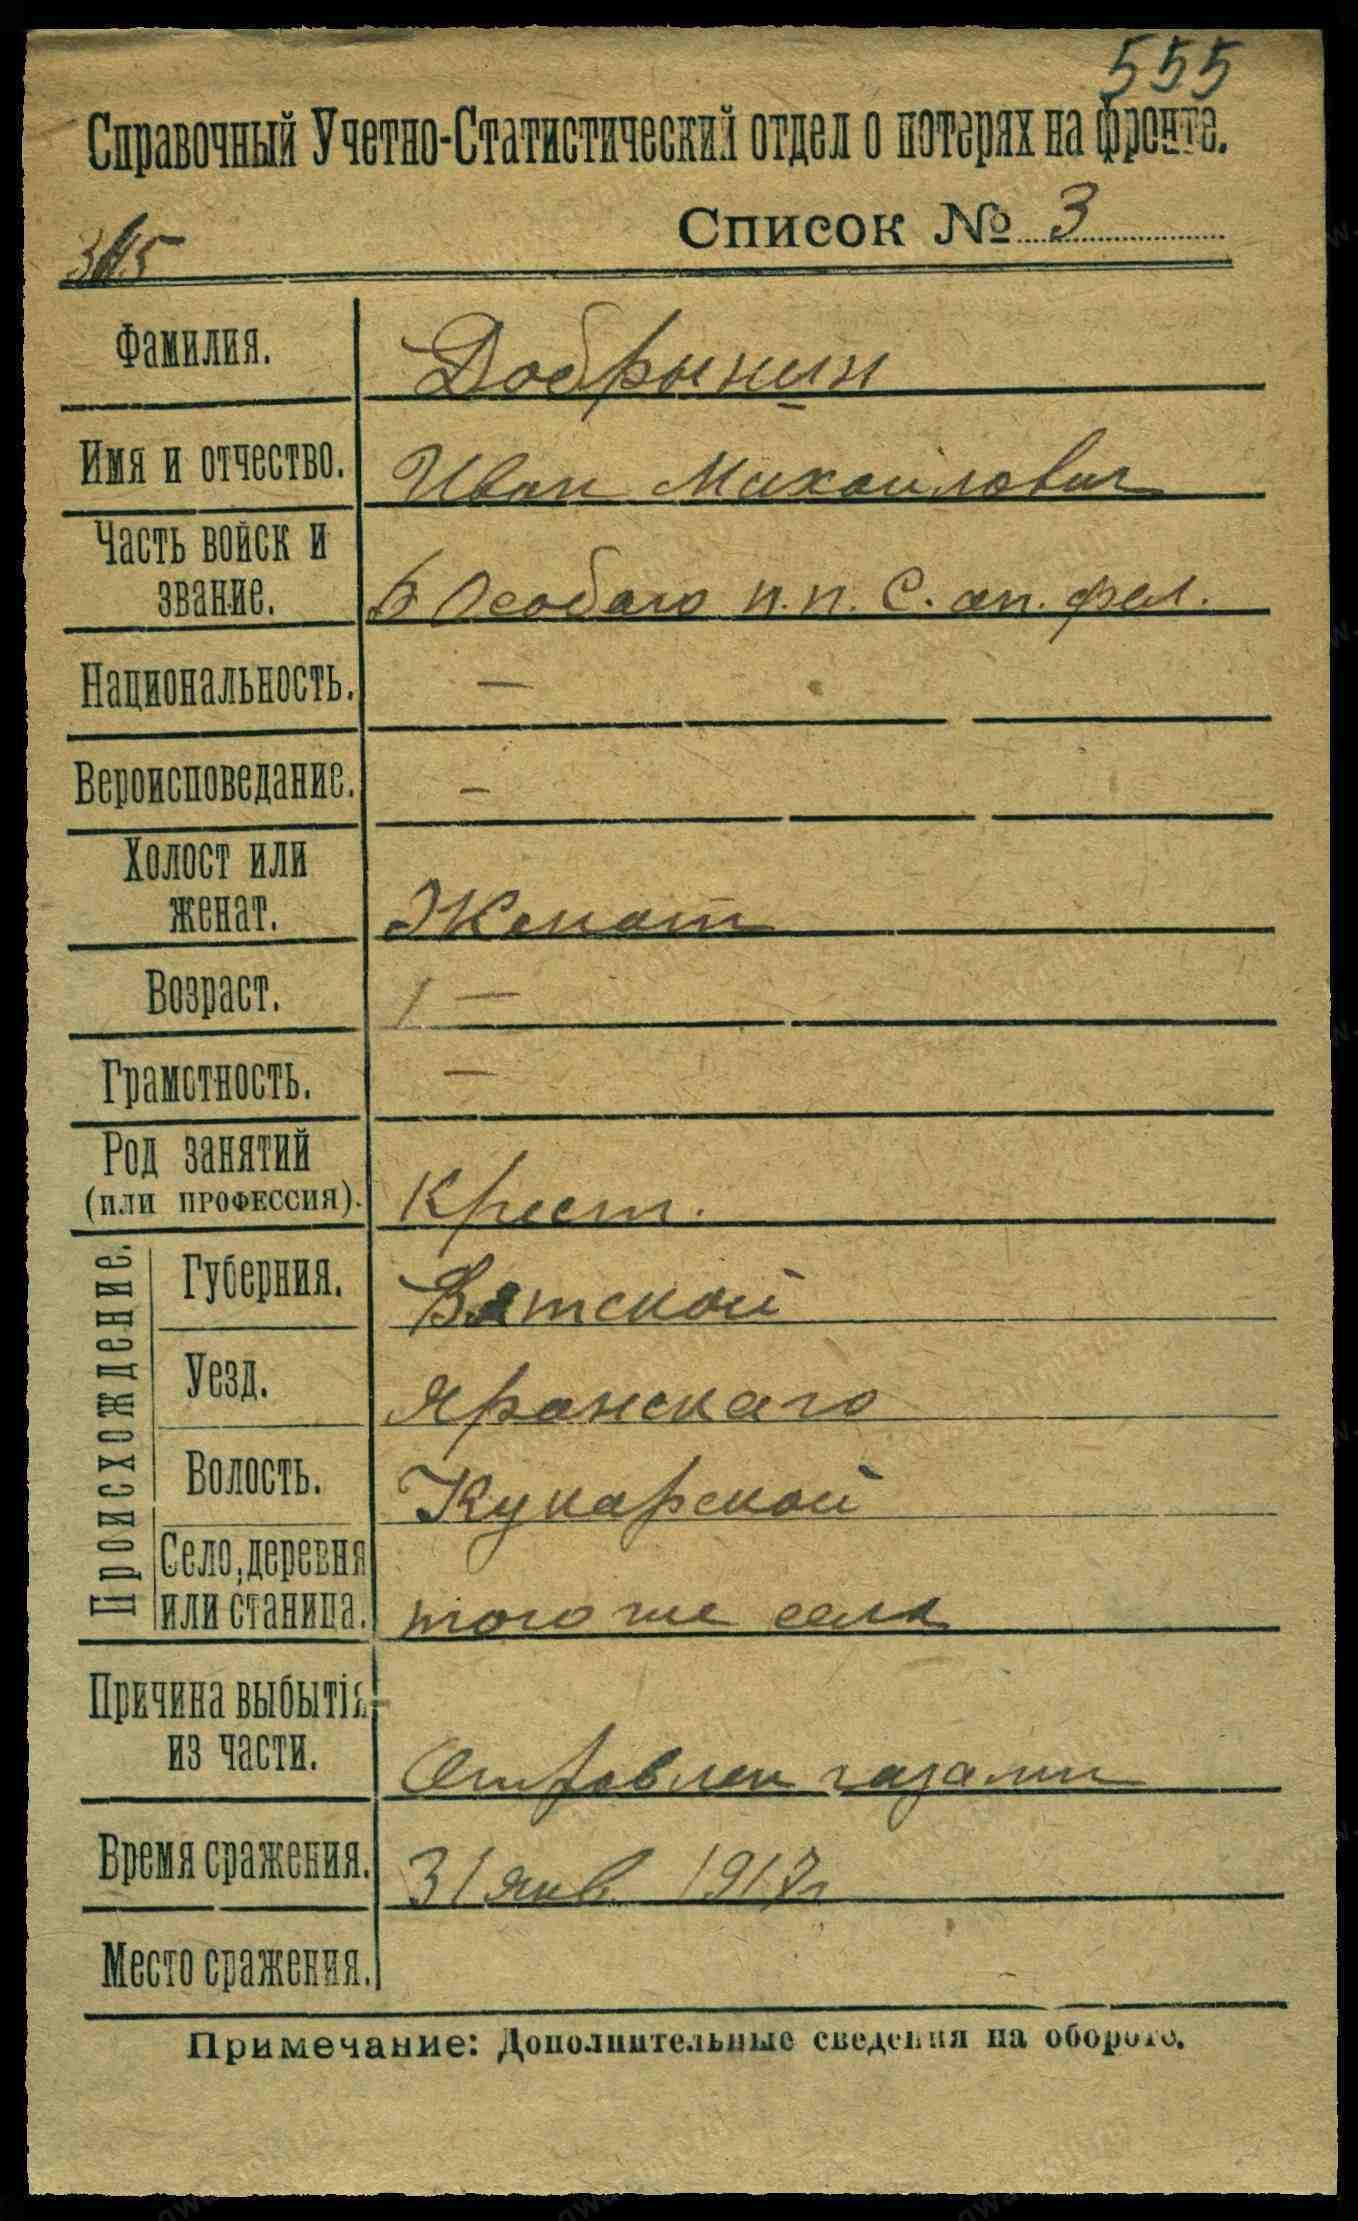 555
Справочный Учетно-Статистический отдел о потерях на фронте.
Список № 3
Фамилия. Добрынин
Имя и отчество. Иван Михайлович
Часть войск и
звание. 6 Особаго п.п. С. ап. фел.
Национальность. —
Вероисповедание. —
Холост или
женат. Женат
Возраст. —
Грамотность. —
Род занятий
(или профессия). Крест.
Происхождение.
Губерния. Вятской
Уезд. Яранскаго
Волость. Кукарской
Село, деревня
или станица. того же села
Причина выбытія
из части. Отравлен газами
Время сражения. 31 янв 1917 г
Место сражения.
Примечание: Дополнительные сведения на обороте.